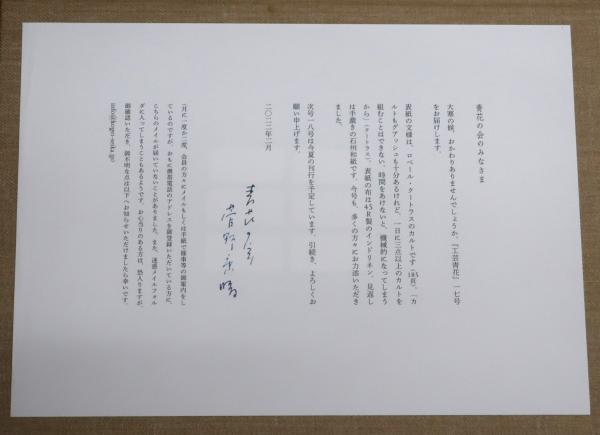 青花の会のみなさま
大寒の候、おかわりありませんでしょうか。『工芸青花』一七号
をお届けします。
表紙の文様は、ロベール・クートラスのカルトです(185頁)。「カ
ルトもグアッシュも十分あるけれど、一日に三点以上のカルトを
組むことはできない。時間をあけないと、機械的になってしまう
から」(クートラス)。表紙の布は45R製のインドリネン、見返し
は手漉きの石州和紙です。今号も、多くの方々にお力添いただき
ました。
次号一八号は今夏の刊行を予定しています。引続き、よろしくお
願い申上げます。
二〇二二年二月
青花の会
菅野康晴
*月に一度か二度、会員の方々にメイルもしくは手紙で催事等の御案内をし
ているのですが、おもに携帯電話のアドレスを御登録いただいている方に、
こちらのメイルが届いていないことがありました。また、迷惑メイルフォル
ダに入ってしまうこともあるようです。お心当りのある方は、恐入りますが、
御確認いただき、御不明な点は以下へお知らせいただけましたら幸いです。
info@kogei-seika.jp